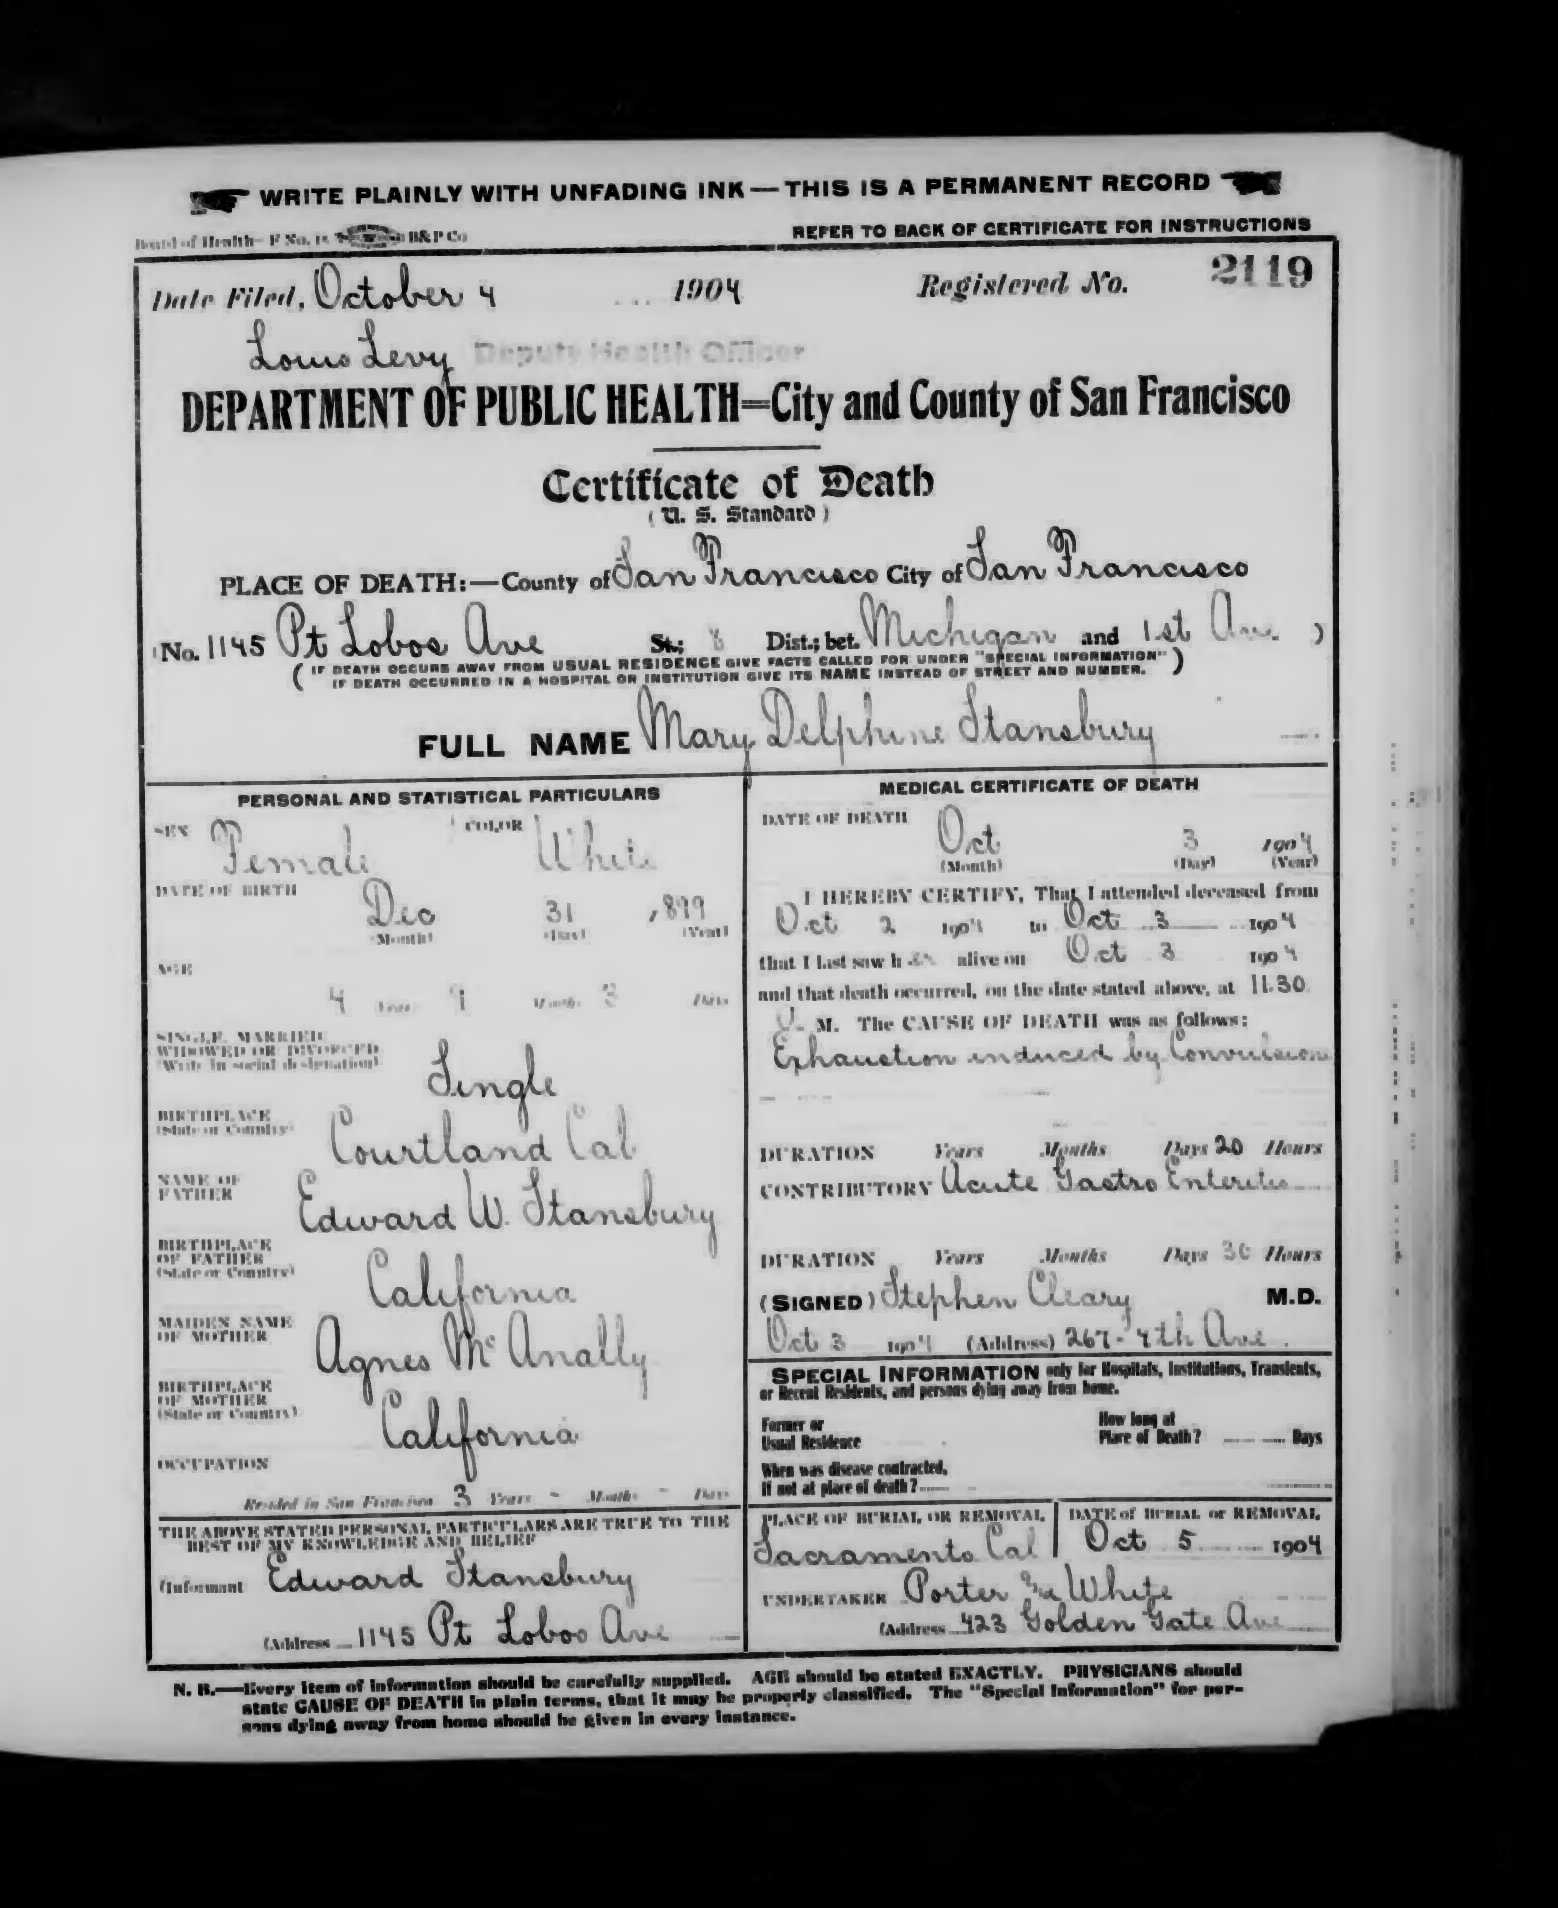 WRITE PLAINLY WITH UNFADING INK — THIS IS A PERMANENT RECORD
Board of Health— F No. B&P Co REFER TO BACK OF CERTIFICATE FOR INSTRUCTIONS
Date Filed, October 4 1904 Registered No. 2119
Louis Levy Deputy Health Officer
DEPARTMENT OF PUBLIC HEALTH=City and County of San Francisco
Certificate of Death
(U. S. Standard)
PLACE OF DEATH:—County of San Francisco City of San Francisco
(No. 1145 Pt Lobos Ave St.; 8 Dist.; bet. Michigan and 1st Av. )
( IF DEATH OCCURS AWAY FROM USUAL RESIDENCE GIVE FACTS CALLED FOR UNDER "SPECIAL INFORMATION" )
IF DEATH OCCURRED IN A HOSPITAL OR INSTITUTION GIVE ITS NAME INSTEAD OF STREET AND NUMBER.
FULL NAME Mary Delphine Stansbury
PERSONAL AND STATISTICAL PARTICULARS
SEX Female COLOR White
DATE OF BIRTH Dec 31 1899
(Month) (Day) (Year)
AGE
4 Years 9 Months 3 Days
SINGLE, MARRIED
WIDOWED OR DIVORCED
(Write in social designation) Single
BIRTHPLACE
(State or Country) Courtland Cal
NAME OF
FATHER Edward W. Stansbury
BIRTHPLACE
OF FATHER
(State or Country) California
MAIDEN NAME
OF MOTHER Agnes McAnally
BIRTHPLACE
OF MOTHER
(State or Country) California
OCCUPATION
Resided in San Francisco 3 Years - Months - Days
THE ABOVE STATED PERSONAL PARTICULARS ARE TRUE TO THE
BEST OF MY KNOWLEDGE AND BELIEF
(Informant Edward Stansbury
(Address 1145 Pt Lobos Ave
MEDICAL CERTIFICATE OF DEATH
DATE OF DEATH
Oct 3 1904
(Month) (Day) (Year)
I HEREBY CERTIFY, That I attended deceased from
Oct 2 1904 to Oct 3 1904
that I last saw h er alive on Oct 3 1904
and that death occurred, on the date stated above, at 11.30
M. The CAUSE OF DEATH was as follows:
Exhaustion induced by Convulsions
DURATION Years Months Days 20 Hours
CONTRIBUTORY Acute Gastro Enteritis
DURATION Years Months Days 30 Hours
(SIGNED) Stephen Cleary M.D.
Oct 3 1904 (Address) 267-4th Ave.
SPECIAL INFORMATION only for Hospitals, Institutions, Transients,
or Recent Residents, and persons dying away from home.
Former or
Usual Residence
How long at
Place of Death? Days
When was disease contracted,
If not at place of death?
PLACE OF BURIAL OR REMOVAL DATE of BURIAL or REMOVAL
Sacramento Cal Oct 5 1904
UNDERTAKER Porter and White
(Address 423 Golden Gate Ave
N. B.—Every item of information should be carefully supplied. AGE should be stated EXACTLY. PHYSICIANS should
state CAUSE OF DEATH in plain terms, that it may be properly classified. The "Special Information" for per-
sons dying away from home should be given in every instance.